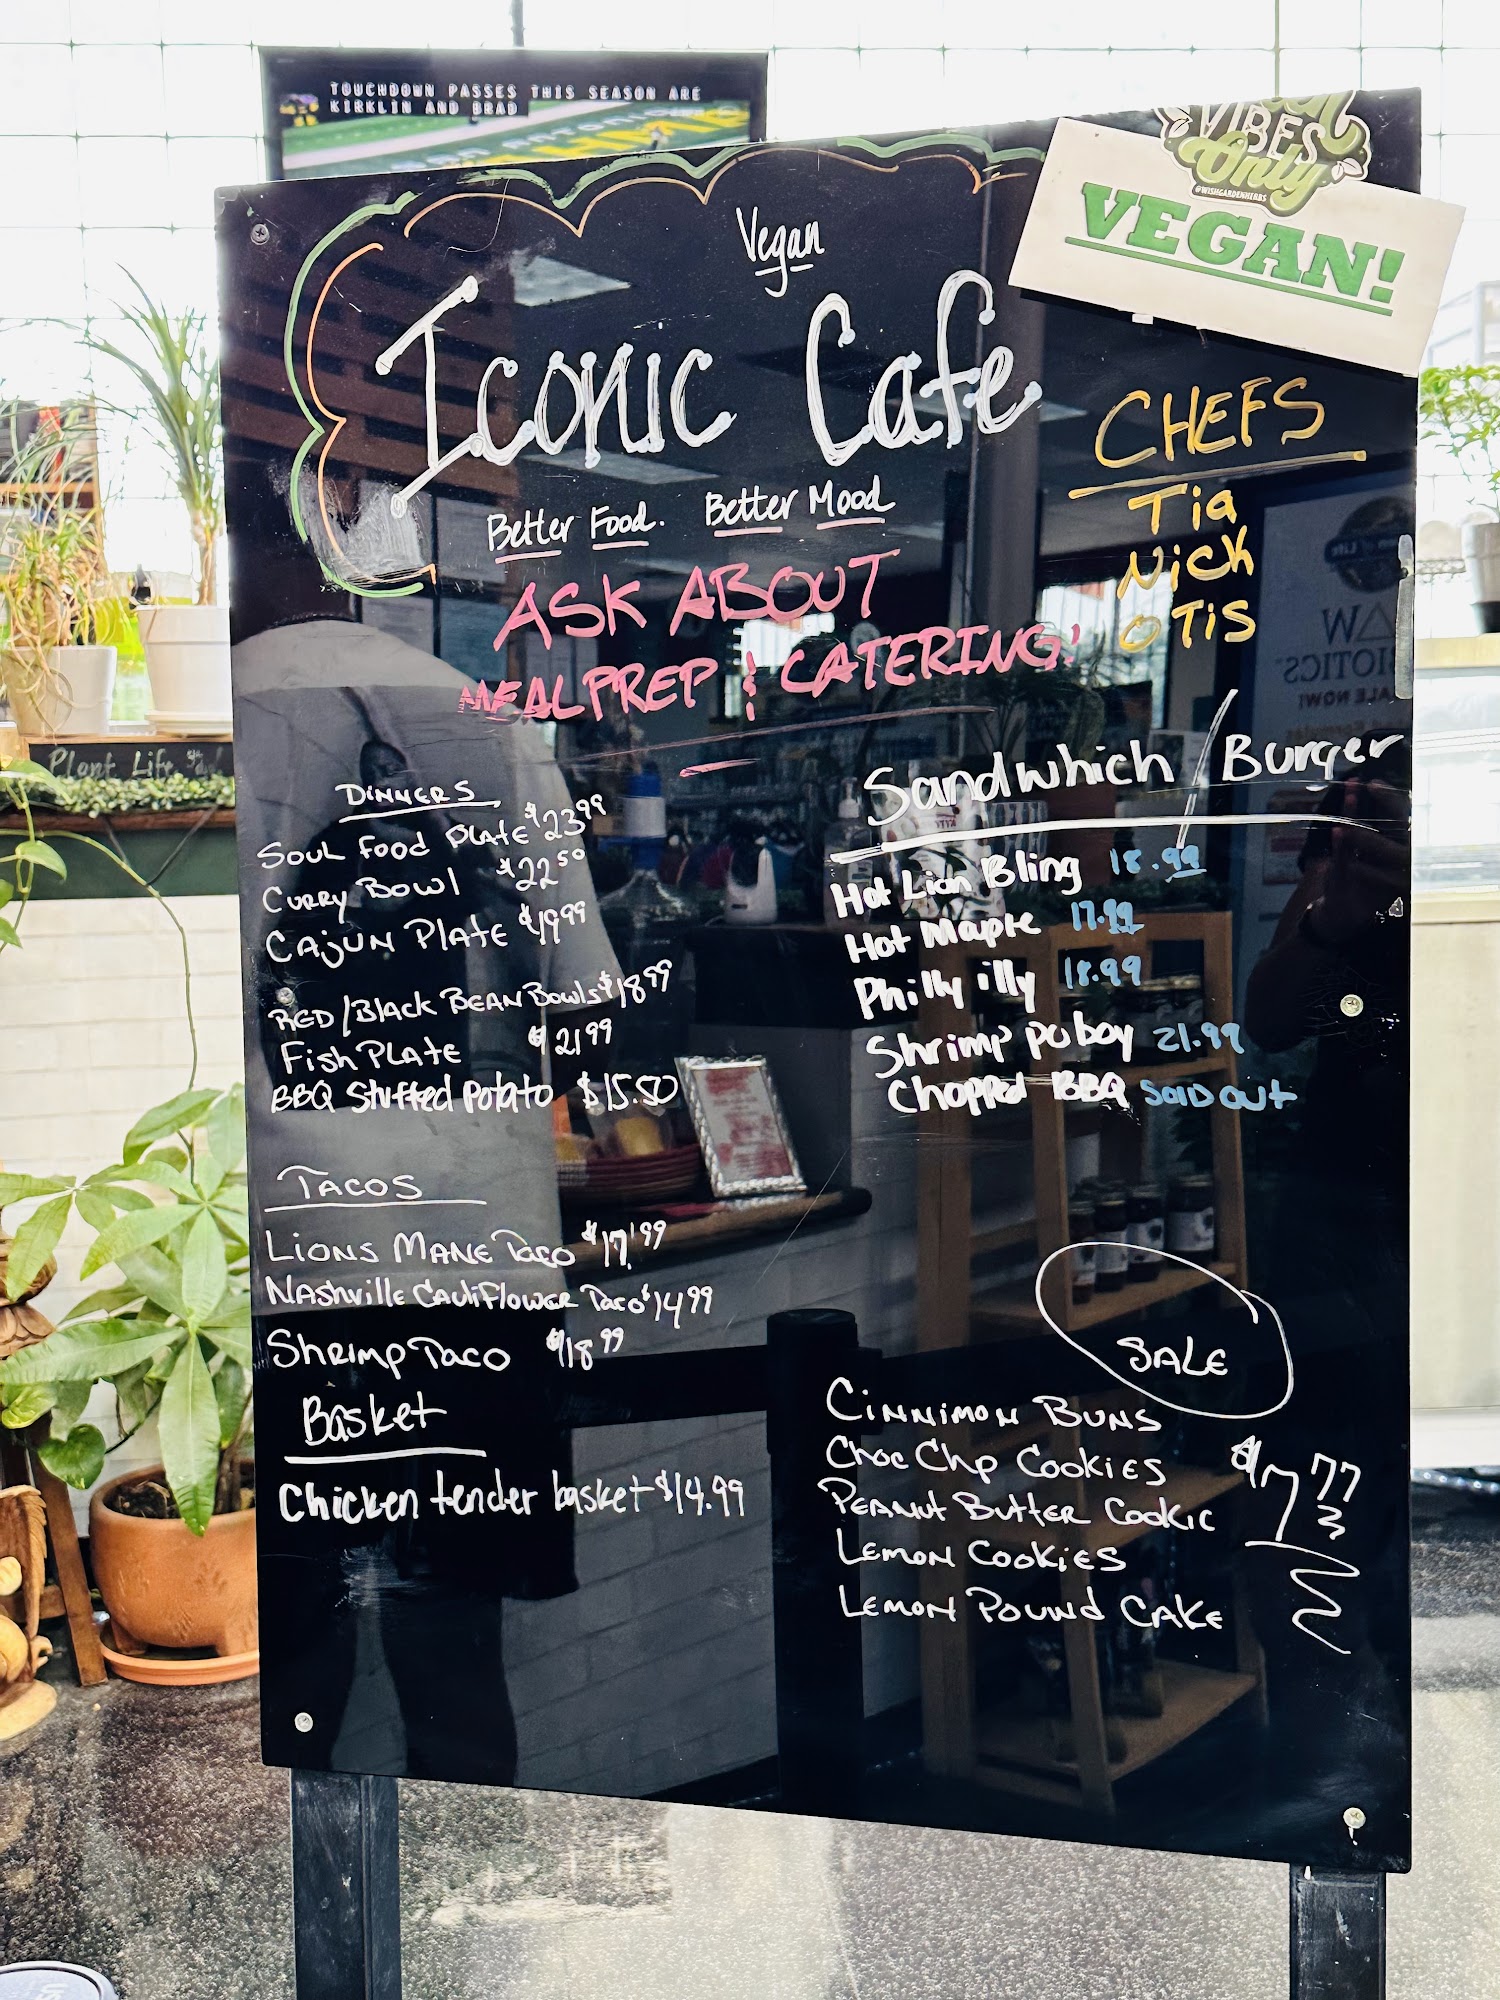 TOUCHDOWN PASSES THIS SEASON ARE
KIRKLIN AND BRAD
VIBES
Only
@WISHGARDENHERBS
VEGAN!
Vegan
Iconic Cafe
Better Food. Better Mood
ASK ABOUT
MEAL PREP & CATERING!
CHEFS
Tia
Nick
OTiS
Plant Life
DINNERS
SOUL FOOD PLATE $23.99
CURRY BOWL $22.50
CAJUN PLATE $19.99
RED/BLACK BEAN BOWLS $18.99
FISH PLATE $21.99
BBQ Stuffed Potato $15.50
TACOS
LIONS MANE TACO $17.99
NASHVILLE CAULIFLOWER TACO $14.99
SHRIMP TACO $18.99
Basket
Chicken tender basket $14.99
Sandwhich / Burger
Hot Lion Bling 18.99
Hot Maple 17.99
Philly illy 18.99
Shrimp po boy 21.99
Chopped BBQ SOLD OUT
SALE
CINNIMON BUNS
CHOC CHP COOKIES
PEANUT BUTTER COOKIE
LEMON COOKIES
LEMON POUND CAKE
$7.77